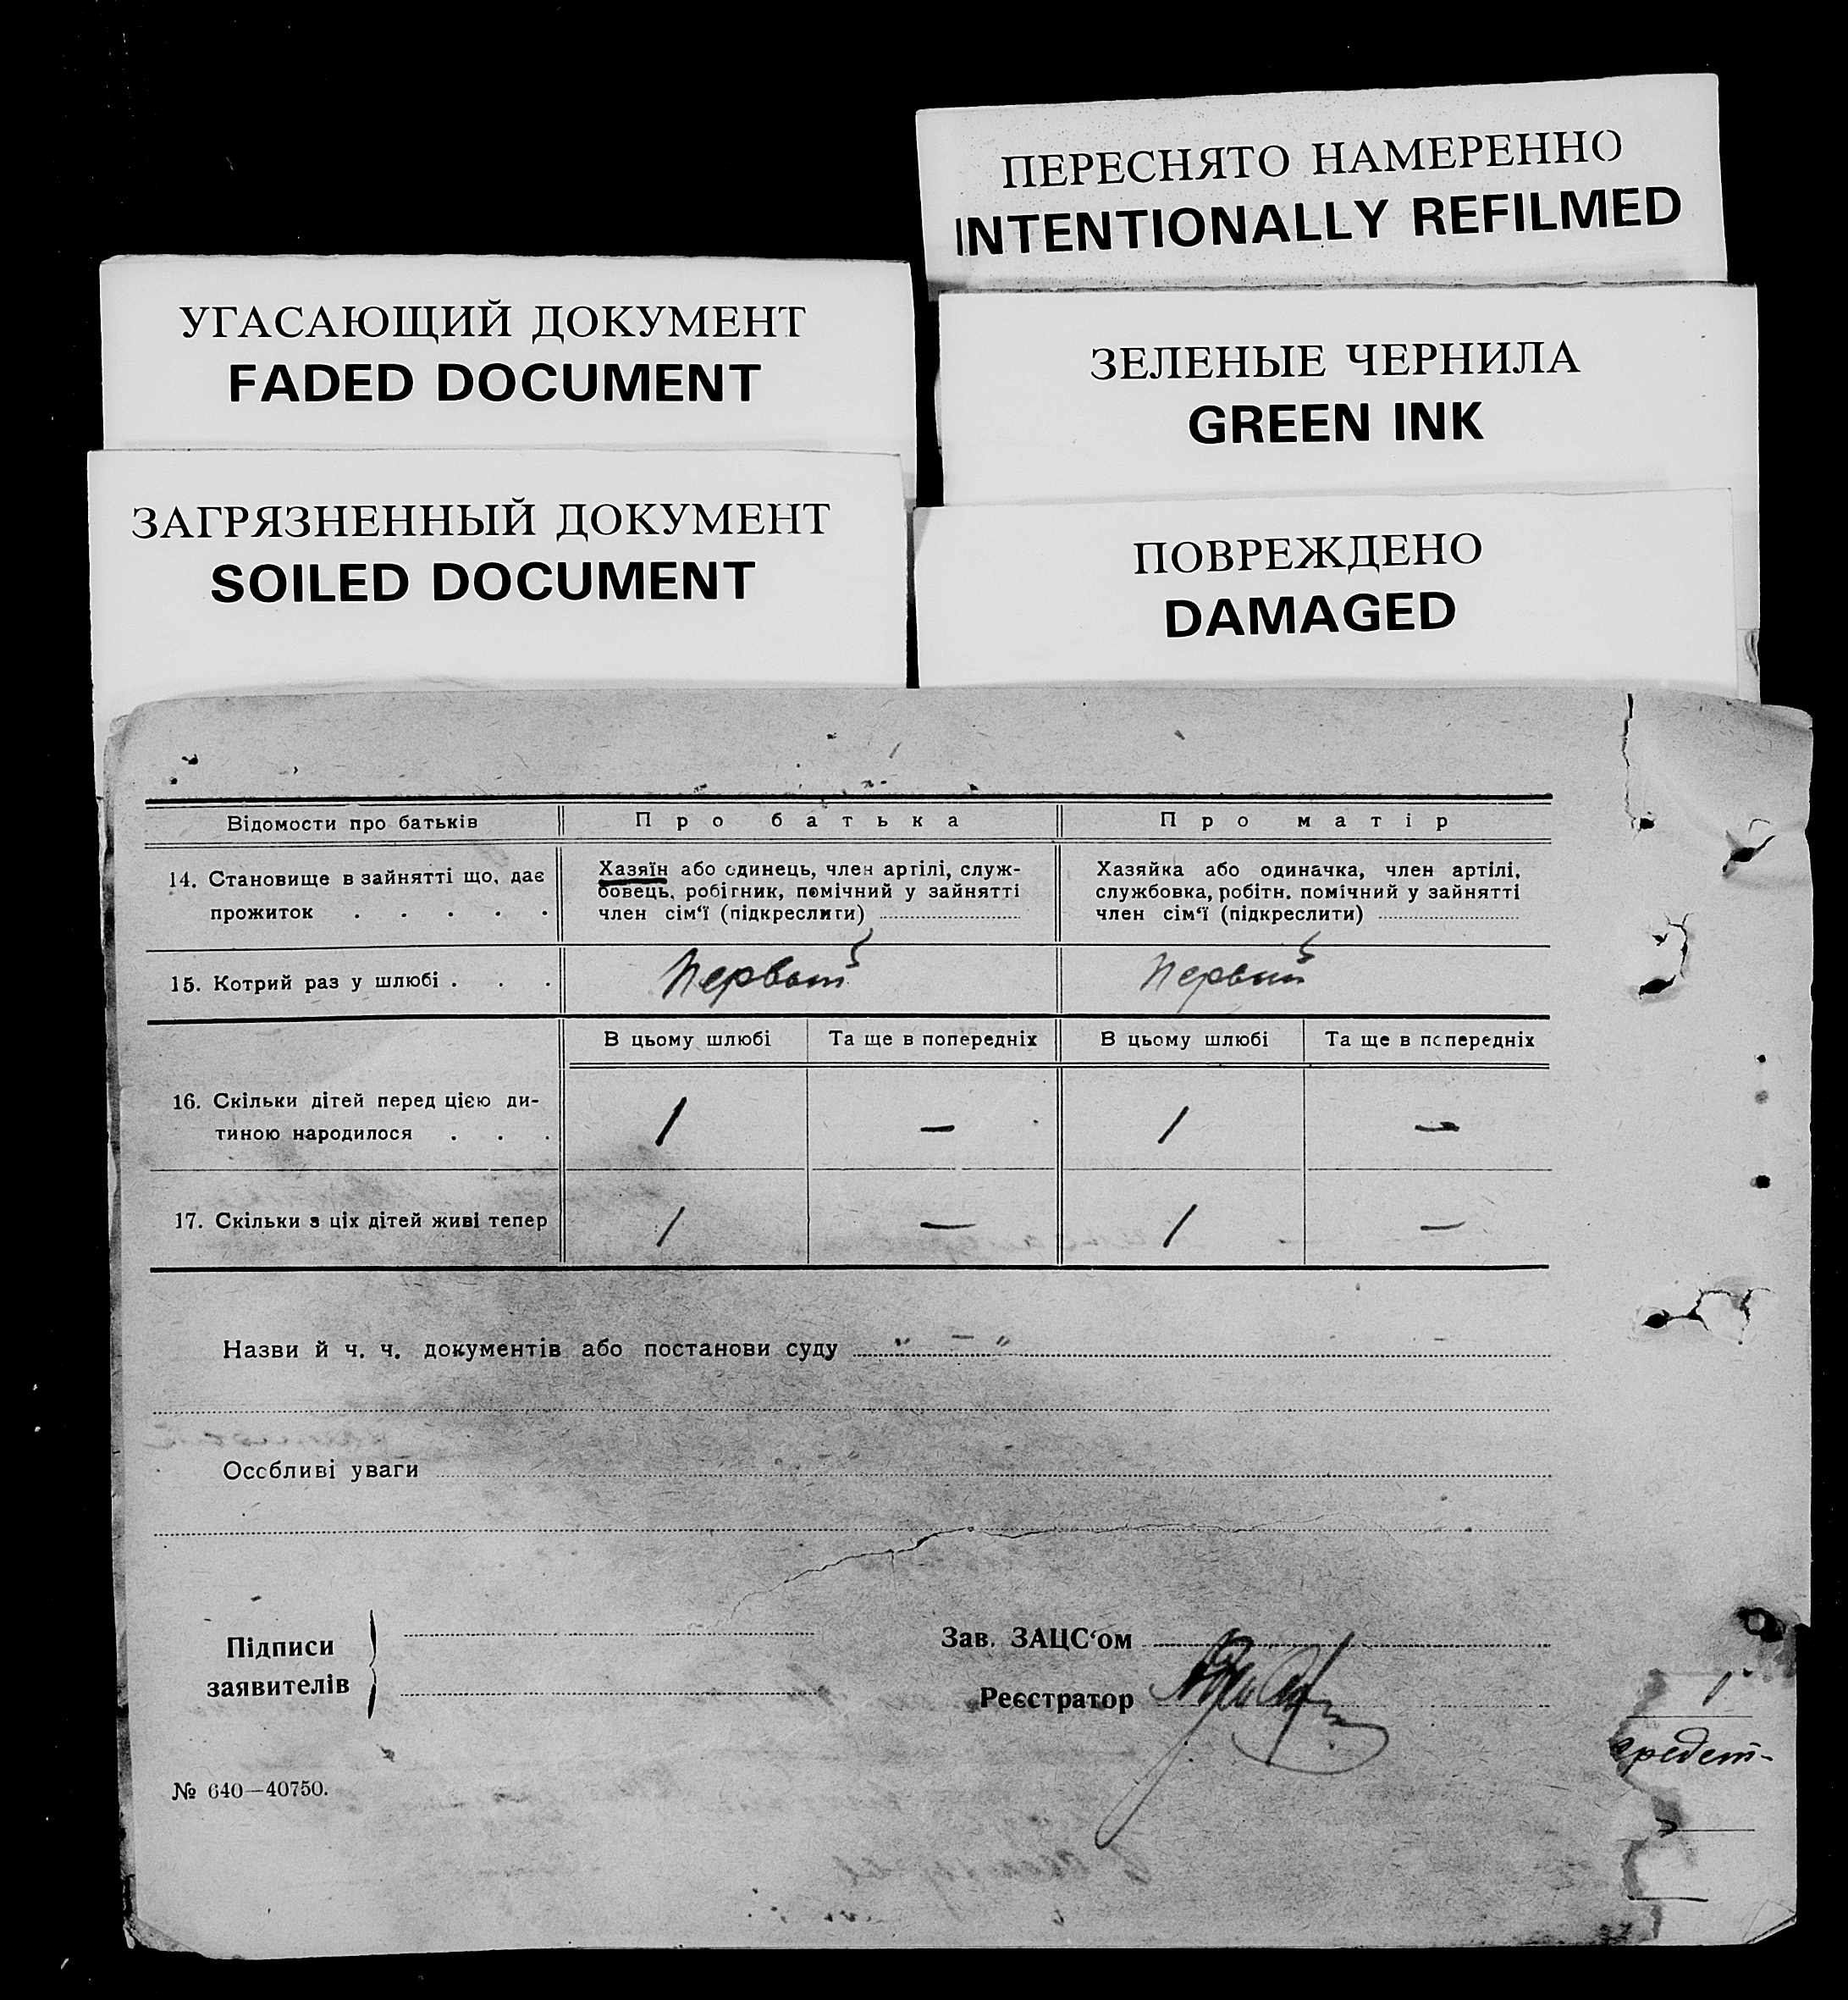 ПЕРЕСНЯТО НАМЕРЕННО
INTENTIONALLY REFILMED
УГАСАЮЩИЙ ДОКУМЕНТ
FADED DOCUMENT
ЗЕЛЕНЫЕ ЧЕРНИЛА
GREEN INK
ЗАГРЯЗНЕННЫЙ ДОКУМЕНТ
SOILED DOCUMENT
ПОВРЕЖДЕНО
DAMAGED
Відомости про батьків
Про батька
Про матір
14. Становище в зайнятті що, дає
прожиток . . . . .
Хазяїн або одинець, член артілі, служ-
бовець, робітник, помічний у зайнятті
член сім‘ї (підкреслити)
Хазяйка або одиначка, член артілі,
службовка, робітн. помічний у зайнятті
член сім‘ї (підкреслити)
15. Котрий раз у шлюбі . . .
Первый
Первый
В цьому шлюбі
Та ще в попередніх
В цьому шлюбі
Та ще в попередніх
16. Скільки дітей перед цією ди-
тиною народилося . . .
1 — 1 —
17. Скільки з ціх дітей живі тепер
1 — 1 —
Назви й ч. ч. документів або постанови суду " — "
Особливі уваги
Підписи
заявителів
Зав. ЗАЦС‘ом
Реєстратор
№ 640—40750.